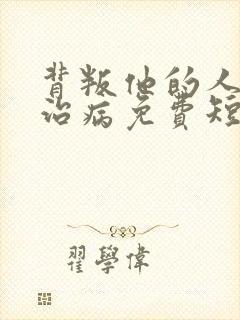 背叛他的人
治病免费短
翟學偉